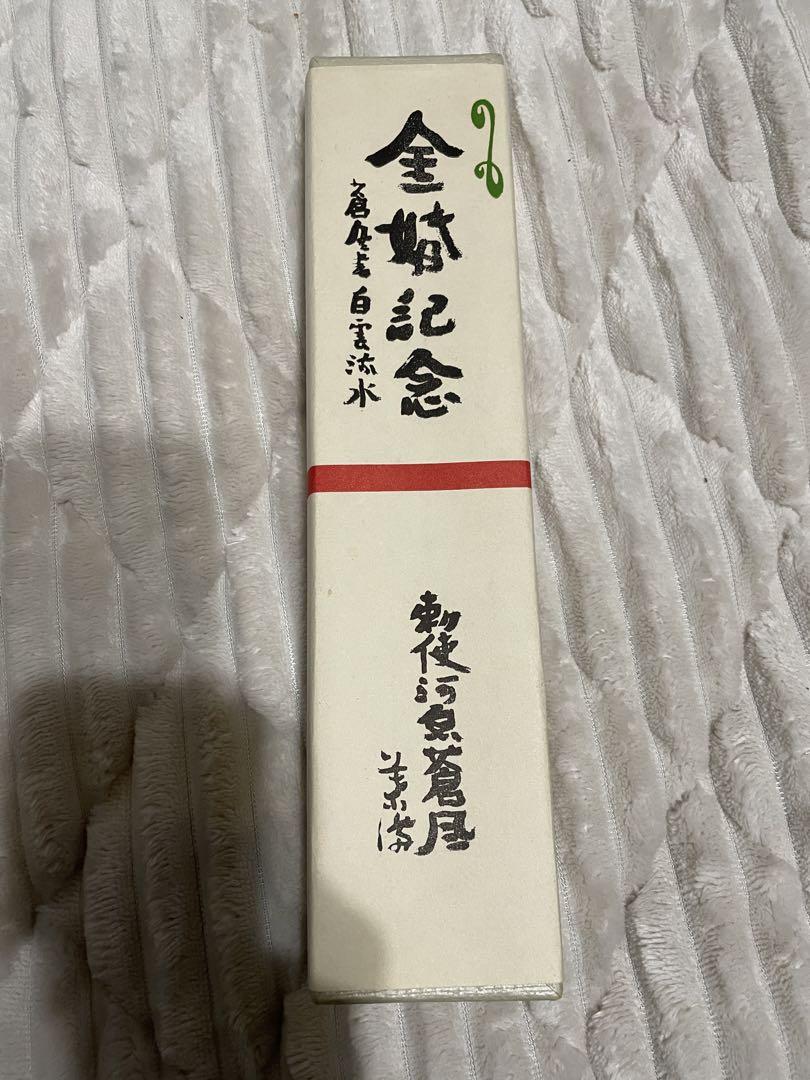 金婚記念
蒼風書 白雲流水
勅使河原蒼風
葉満